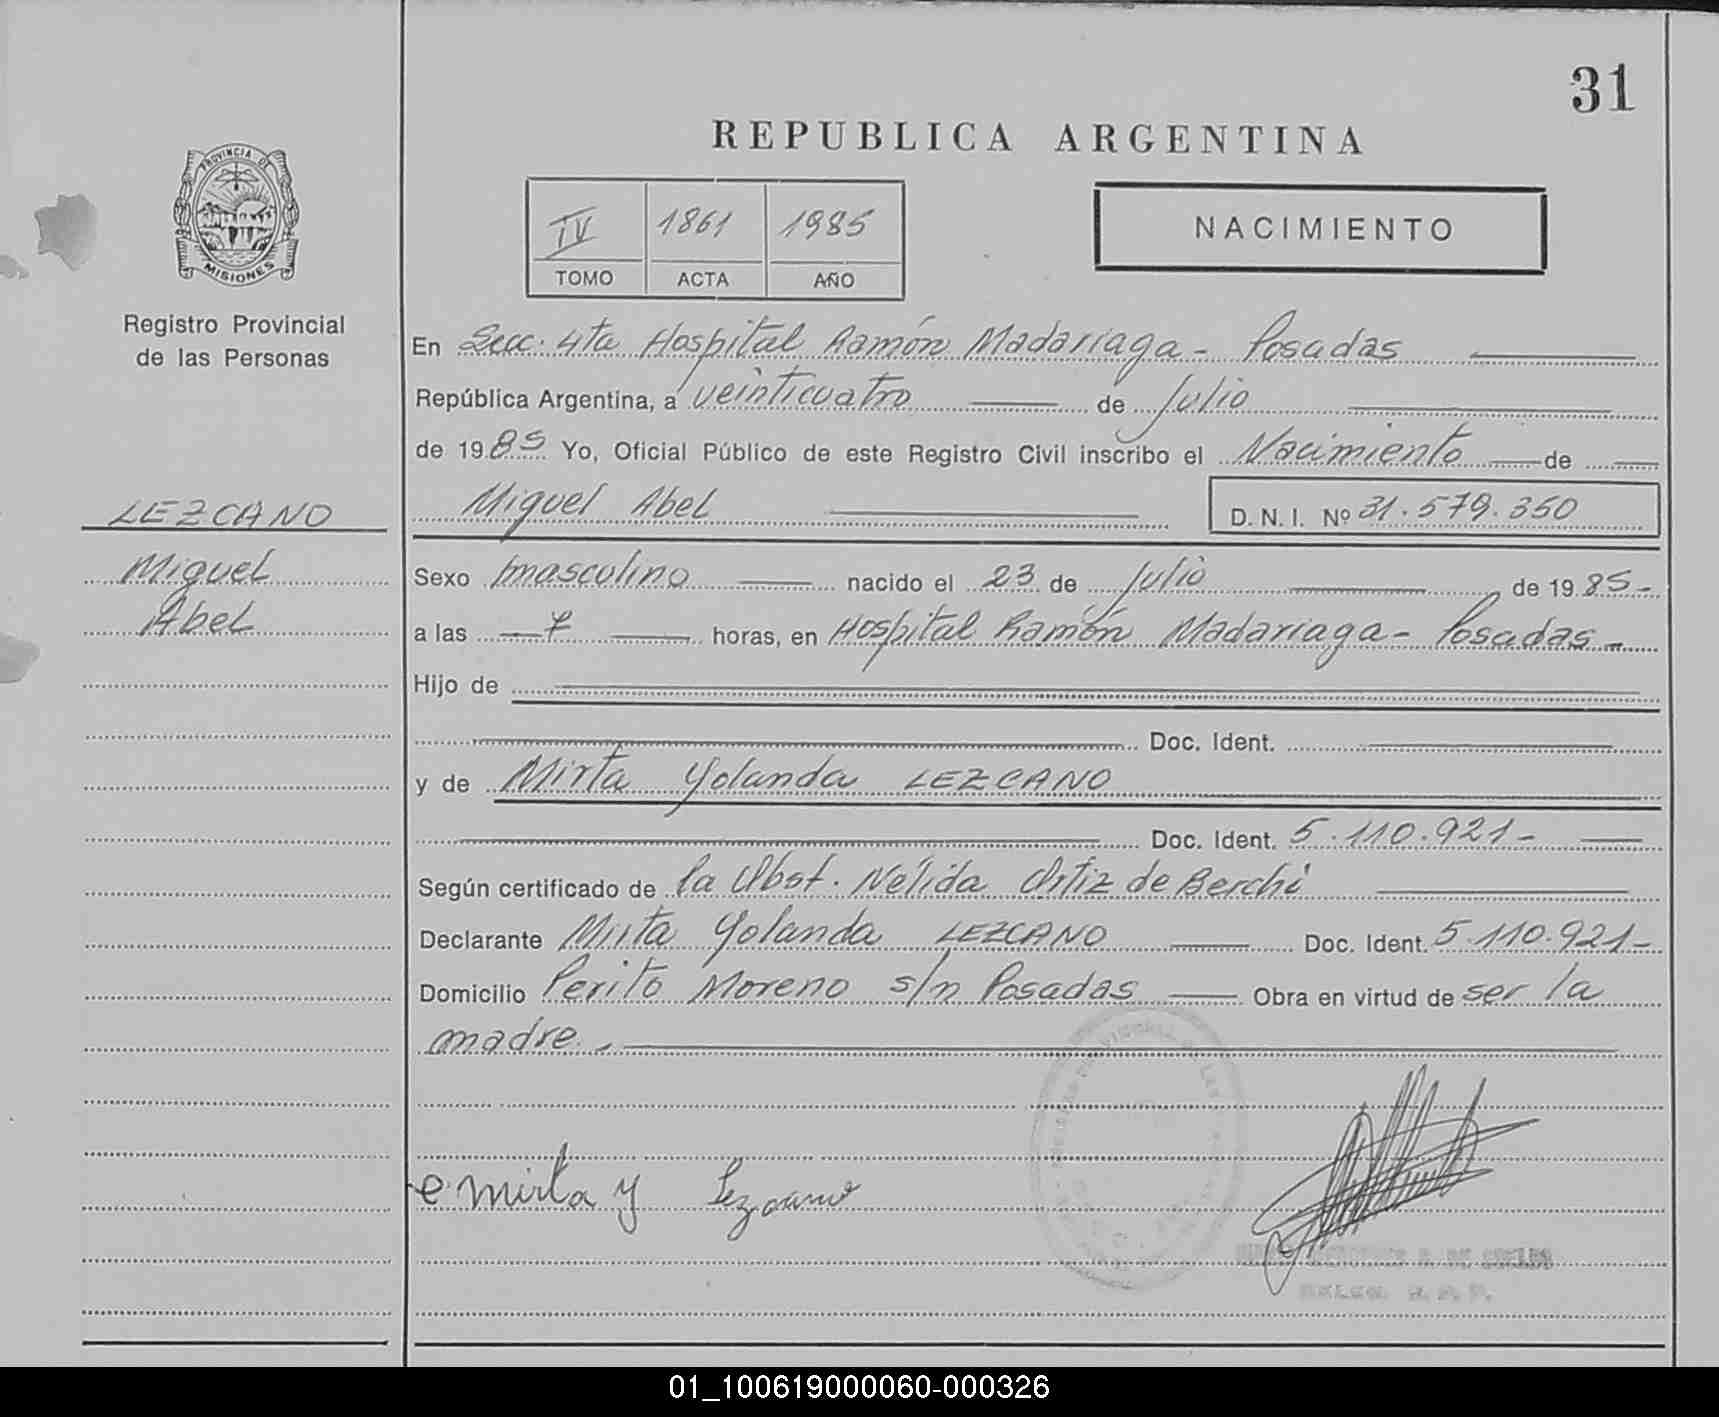 31
REPUBLICA ARGENTINA
PROVINCIA DE
MISIONES
Registro Provincial
de las Personas
IV 1861 1985
TOMO ACTA AÑO
NACIMIENTO
En Secc. 4ta Hospital Ramón Madariaga - Posadas
República Argentina, a veinticuatro de Julio
de 1985 Yo, Oficial Público de este Registro Civil inscribo el Nacimiento de
LEZCANO
Miguel Abel D. N. I. Nº 31.579.350
Miguel
Sexo masculino nacido el 23 de Julio de 1985-
Abel
a las 7 horas, en Hospital Ramón Madariaga - Posadas -
Hijo de
Doc. Ident.
y de Mirta Yolanda LEZCANO
Doc. Ident. 5.110.921-
Según certificado de la Obst. Nélida Ortiz de Berchi
Declarante Mirta Yolanda LEZCANO Doc. Ident. 5.110.921-
Domicilio Perito Moreno s/n Posadas Obra en virtud de ser la
madre.
mirta y Lezcano
01_100619000060-000326